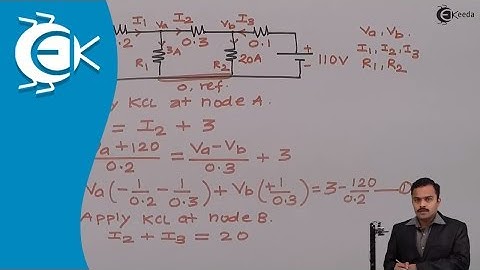 I₁ Va I₂ Vb I₃
0.2 3A 0.3 20A 0.1
R₁ R₂ + - 110V
0, ref.
Va, Vb.
I₁, I₂, I₃
R₁, R₂
KCL at node A.
= I₂ + 3
Va+120/0.2 = Va-Vb/0.3 + 3
Va(-1/0.2 - 1/0.3) + Vb(+1/0.3) = 3 - 120/0.2 —①
Apply KCL at node B.
I₂ + I₃ = 20
EK
Ekeeda